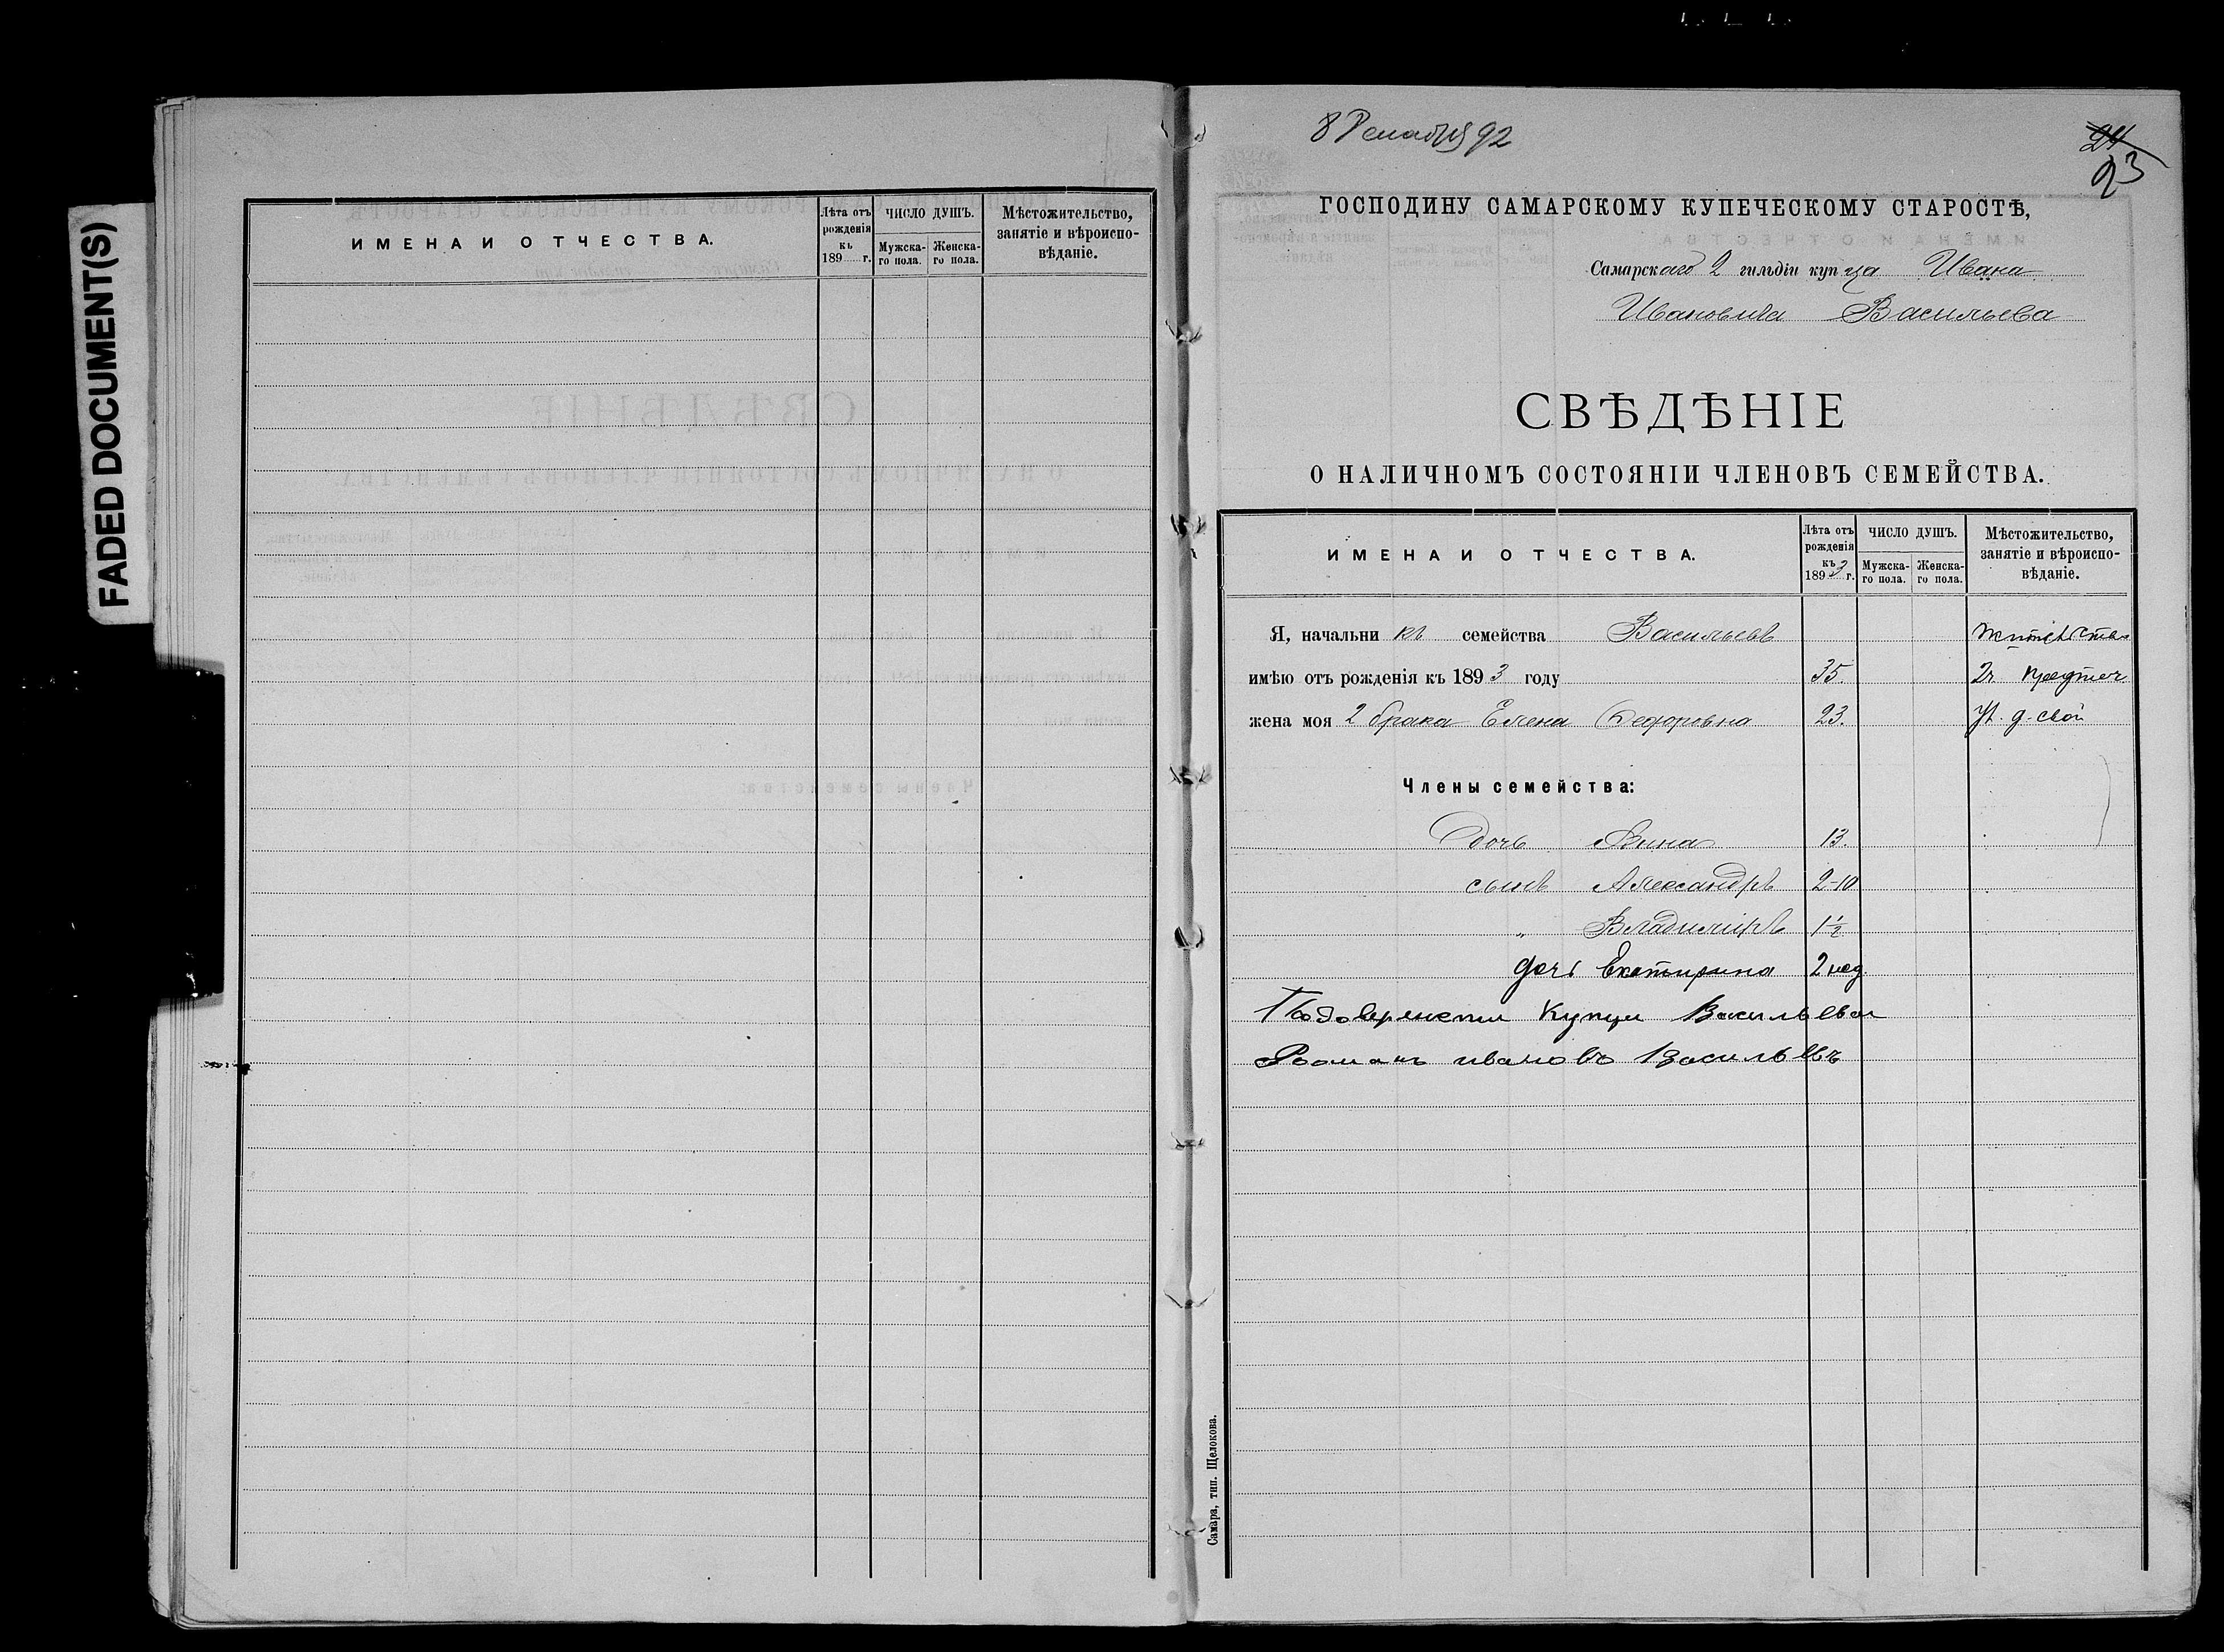 FADED DOCUMENT(S)
ИМЕНА И ОТЧЕСТВА.
Лѣта отъ рожденія къ 189 г.
ЧИСЛО ДУШЪ.
Мужска-го пола.
Женска-го пола.
Мѣстожительство, занятіе и вѣроиспо-вѣданіе.
8 Декабря 92
24
23
ГОСПОДИНУ САМАРСКОМУ КУПЕЧЕСКОМУ СТАРОСТѢ,
Самарскаго 2 гильдіи купца Ивана
Ивановича Васильева
СВѢДѢНІЕ
О НАЛИЧНОМЪ СОСТОЯНІИ ЧЛЕНОВЪ СЕМЕЙСТВА.
ИМЕНА И ОТЧЕСТВА.
Лѣта отъ рожденія къ 1893 г.
ЧИСЛО ДУШЪ.
Мужска-го пола.
Женска-го пола.
Мѣстожительство, занятіе и вѣроиспо-вѣданіе.
Я, начальникъ семейства Васильевъ
имѣю отъ рожденія къ 1893 году 35. 2ч
жена моя 2 брака Елена Федоровна 23. д. свой
Члены семейства:
Дочь Анна 13.
сынъ Александръ 2-10
" Владиміръ 1½
дочь Екатирина 2 нед.
Купци Васильева
ивановъ Васильевъ
Самара, тип. Щелокова.